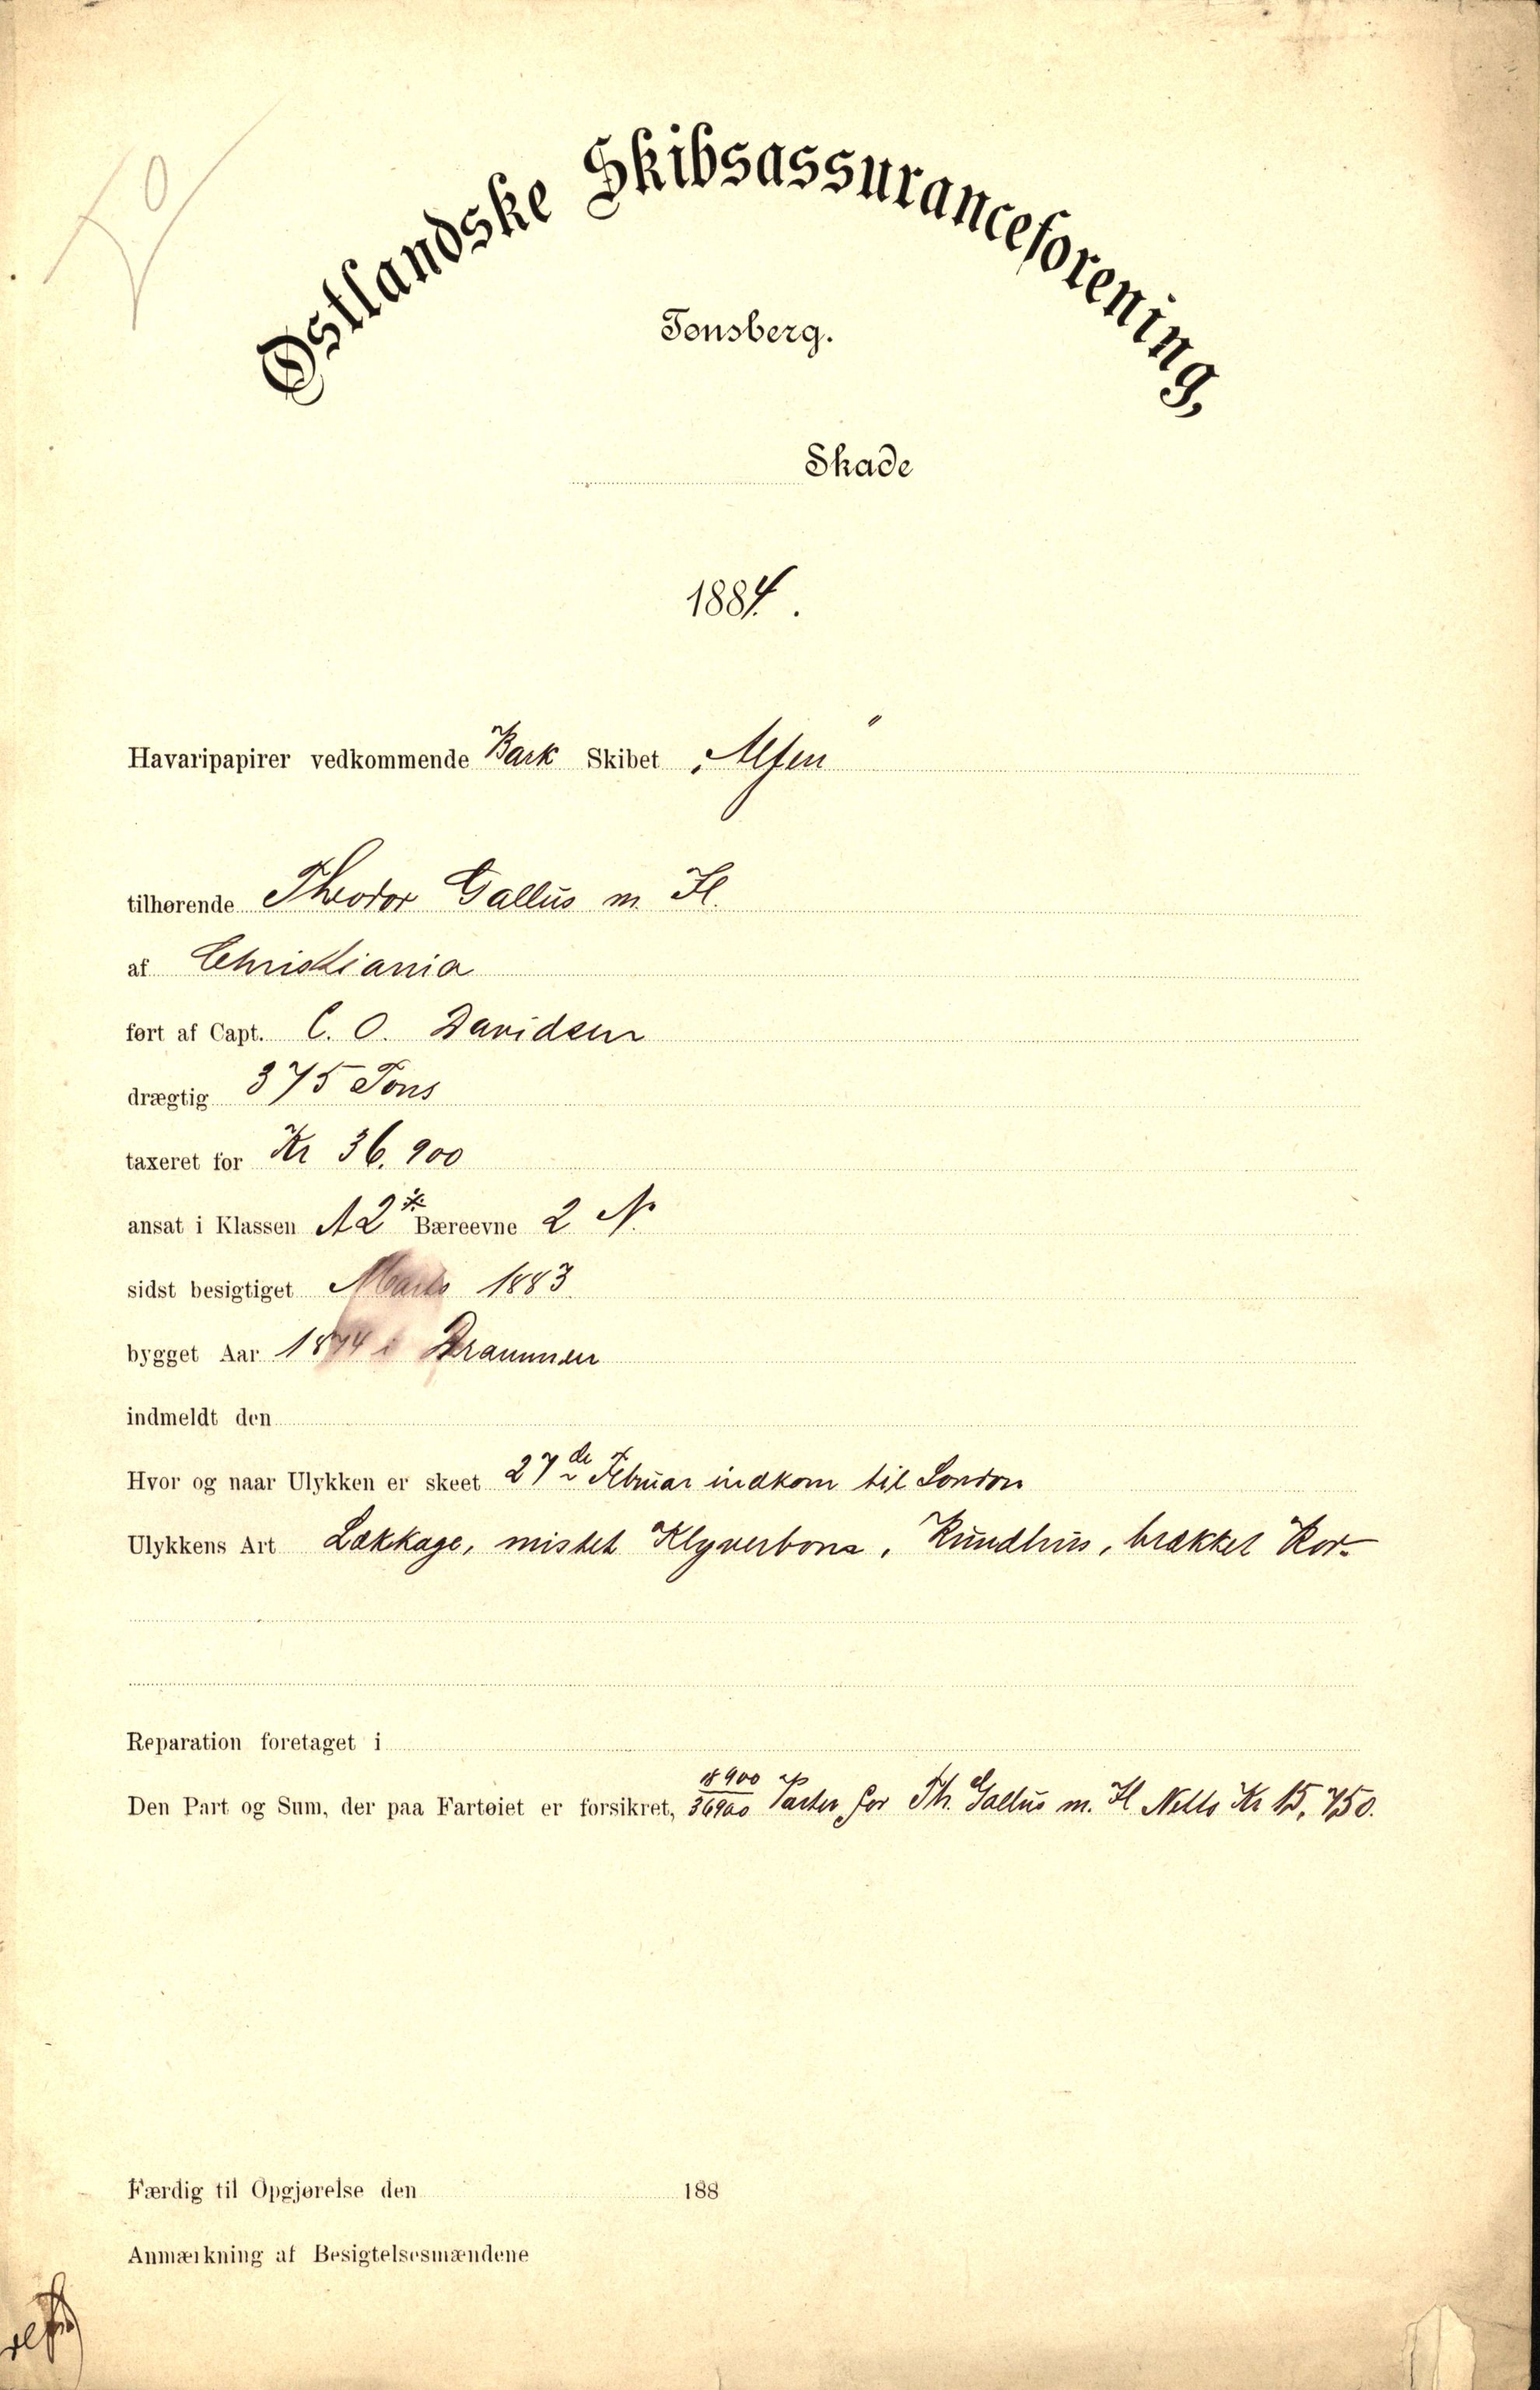 Østlandske Skibsassuranceforening,
Tønsberg.
Skade
1884.
Havaripapirer vedkommende Bark Skibet „Alfen"
tilhørende Theodor Gallus m. Fl.
af Christiania
ført af Capt. C. O. Davidsen
drægtig 375 Tons
taxeret for Kr 36.900
ansat i Klassen A2 Bæreevne 2 N.
sidst besigtiget Marts 1883
bygget Aar 1874 i Drammen
indmeldt den
Hvor og naar Ulykken er skeet 27de Februar indkom til London
Ulykkens Art Lækkage, mistet Klyverbom, Rundhus, brækket Ror-
Reparation foretaget i
Den Part og Sum, der paa Fartøiet er forsikret, 18900/36900 Parter for Th. Gallus m. Fl Netto Kr 15,750.
Færdig til Opgjørelse den 188
Anmærkning af Besigtelsesmændene